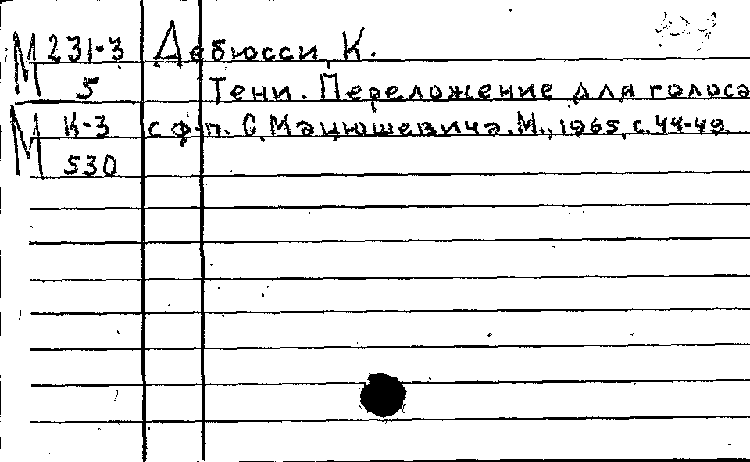 М 231-3 Дебюсси, К.
5 Тени. Переложение для голоса
М К-3 с ф-п. С. Мацюшевича. М., 1965, с. 44-49
530